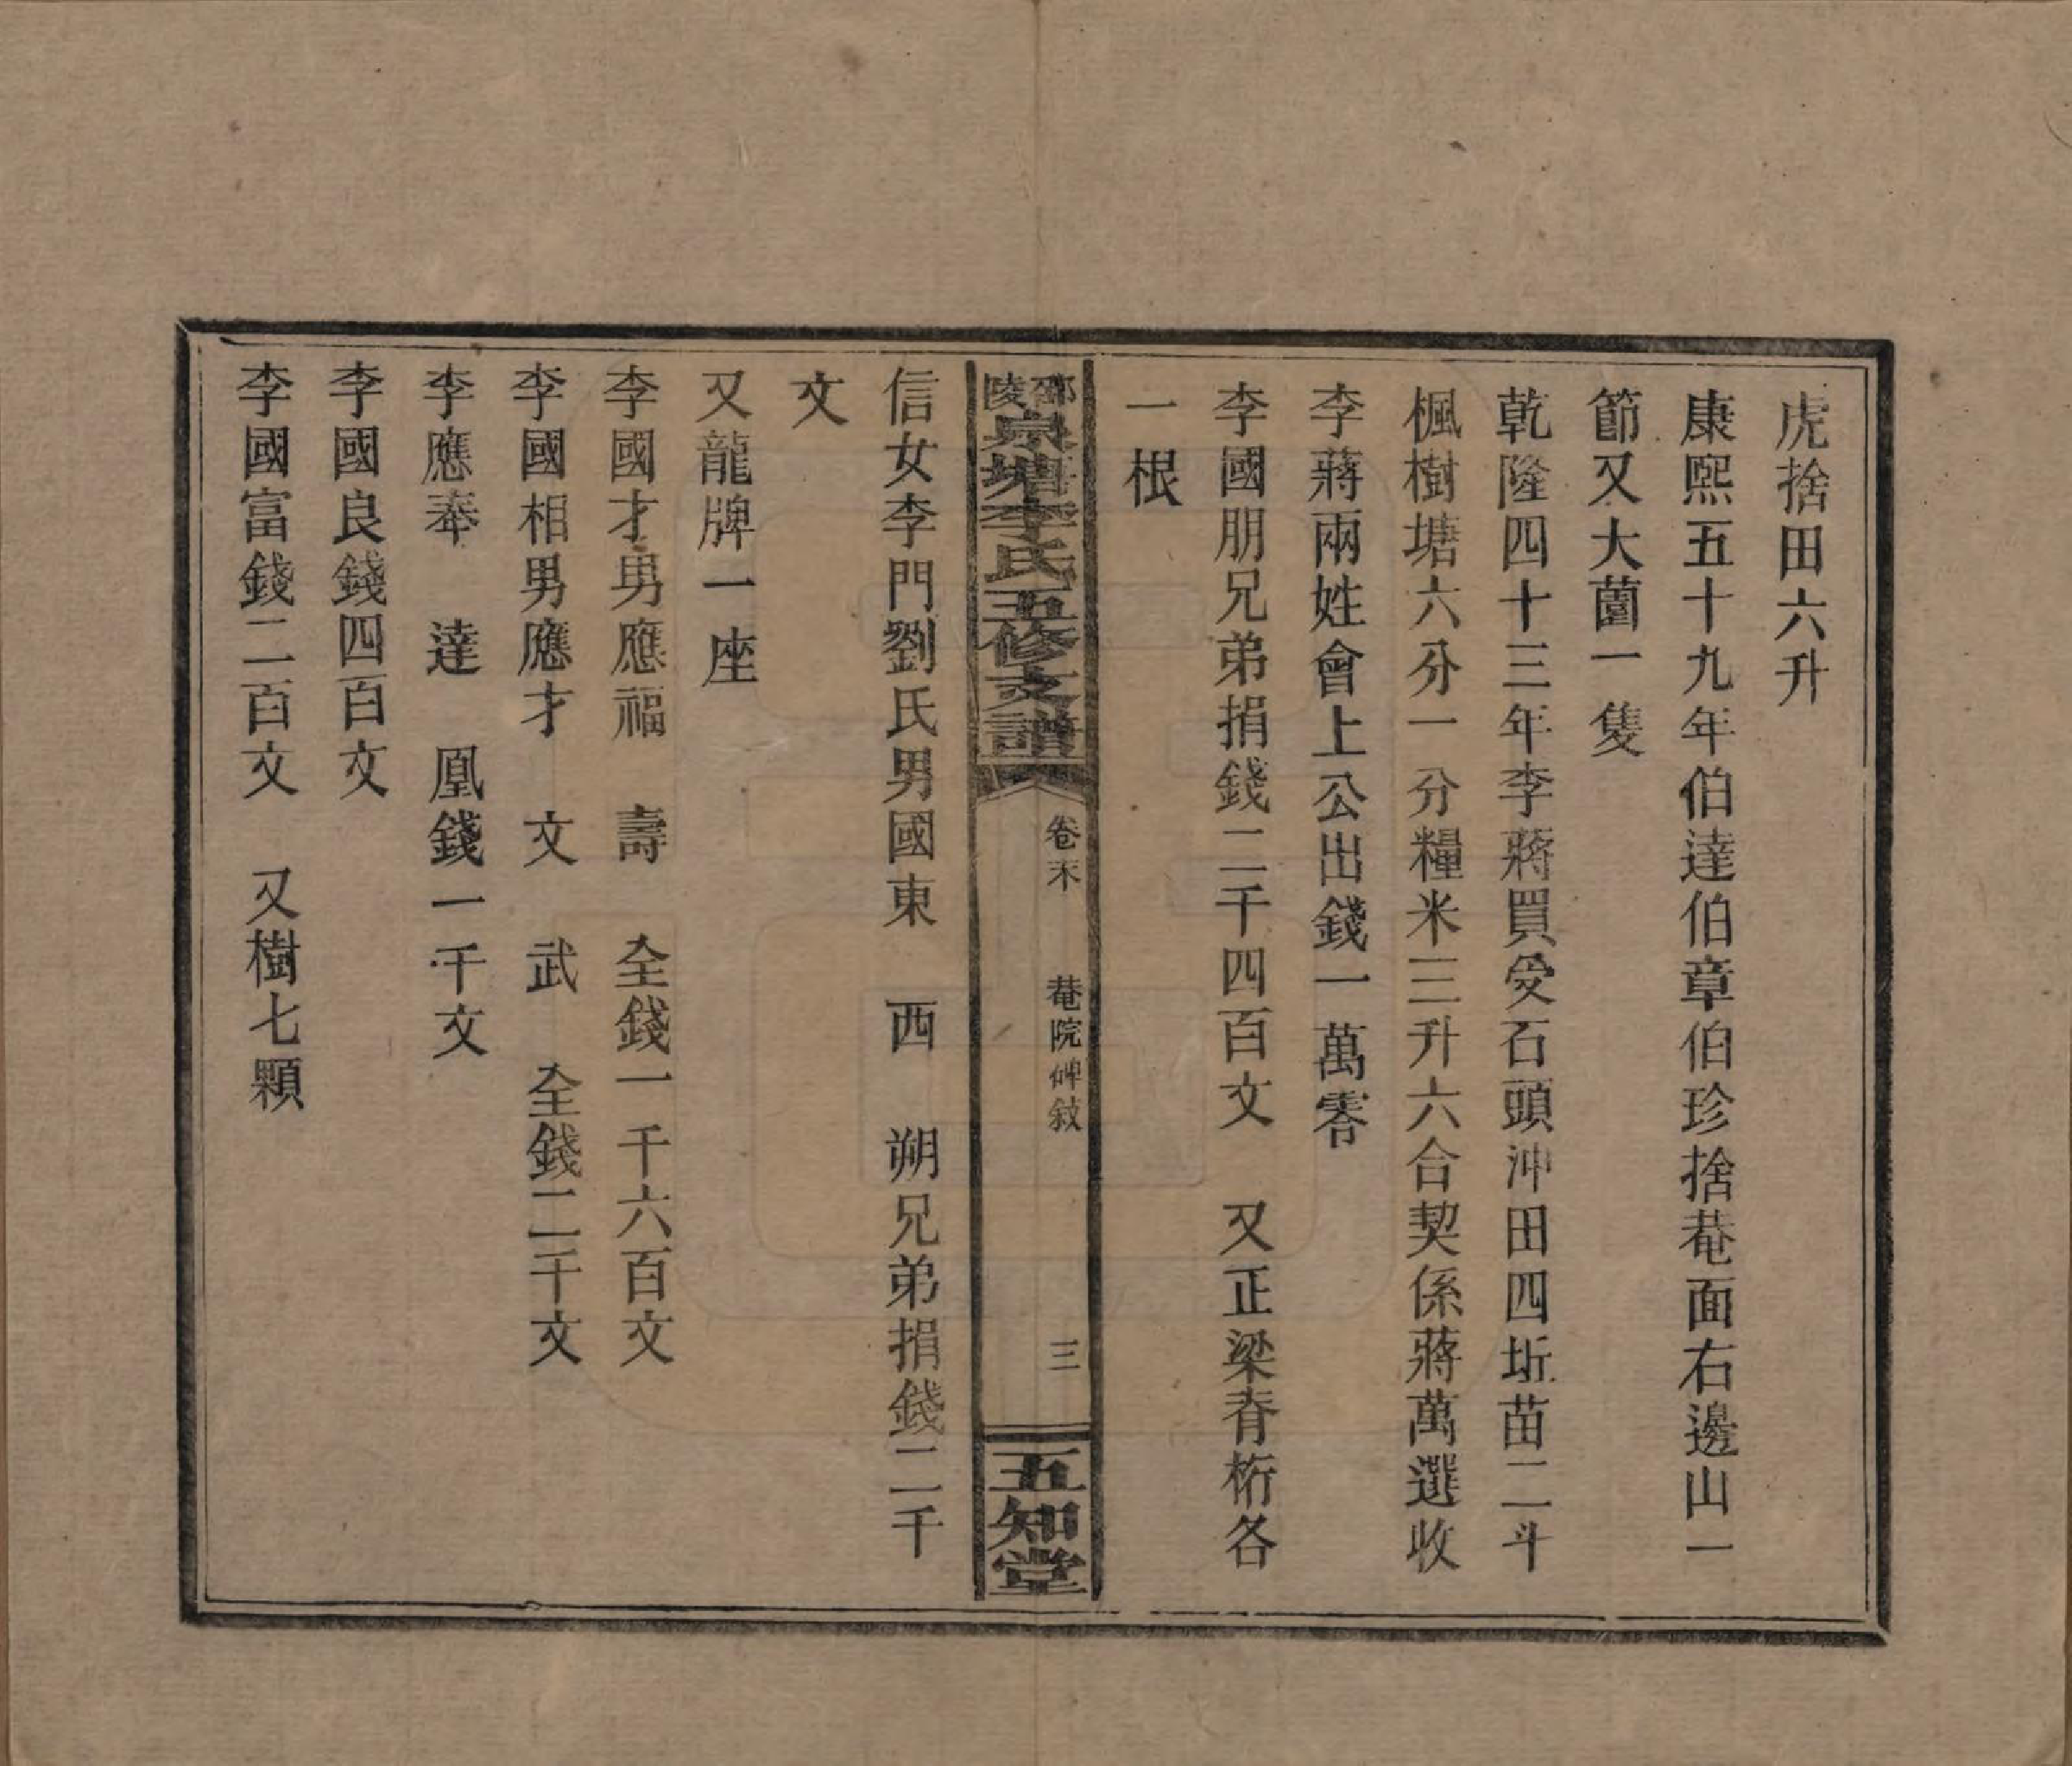 虎捨田六升
康熙五十九年伯達伯章伯珍捨菴面右邊山一
節又大薗一隻
乾隆四十三年李蔣買受石頭沖田四坵苗二斗
楓樹塘六分一分糧米三升六合契係蔣萬選收
李蔣兩姓會上公出錢一萬零
李國朋兄弟捐錢二千四百文　又正梁脊桁各
一根
邵陵泉塘李氏五修支譜
卷末　菴院碑敍　三
五知堂
信女李門劉氏男國東　西　朔兄弟捐錢二千
文
又龍牌一座
李國才男應福　壽　仝錢一千六百文
李國相男應才　文　武　仝錢二千文
李應奉　達　凰錢一千文
李國良錢四百文
李國富錢二百文　又樹七顆